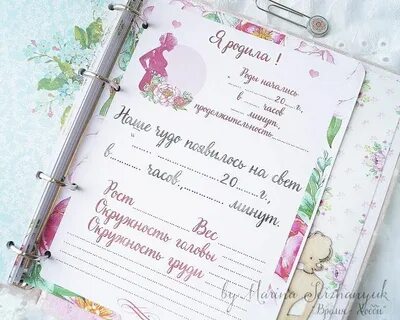 Я родила !
Роды начались
"......"............20....г.
в ....... часов
........... минут,
продолжительность............
Наше чудо появилось на свет
"......" .................. 20......г.,
в............ часов.,............... минут.
Рост................ Вес................
Окружность головы................
Окружность груди................
by Marina Serzhanyuk
"Время - Хобби"